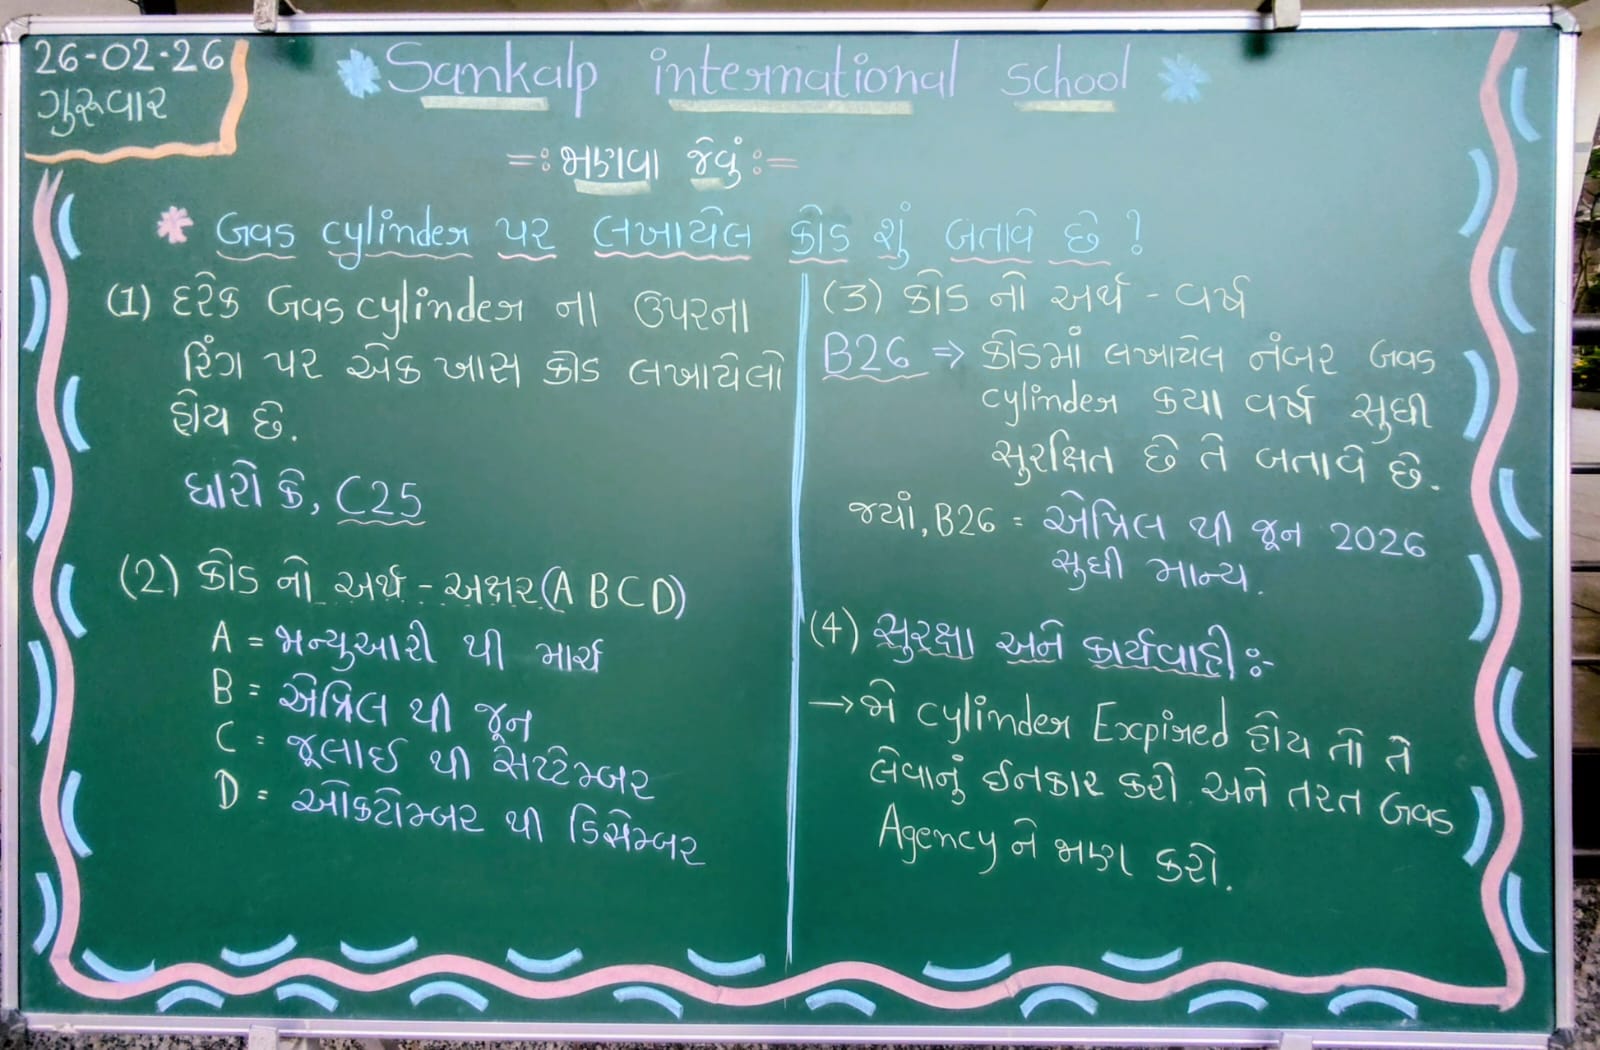 26-02-26
ગુરૂવાર
Sankalp international school
=: ભણવા જેવું :=
* Gas cylinder પર લખાયેલ કોડ શું બતાવે છે ?
(1) દરેક Gas cylinder ના ઉપરના
રિંગ પર એક ખાસ કોડ લખાયેલો
હોય છે.
ધારો કે, C25
(2) કોડ નો અર્થ - અક્ષર (A B C D)
A = જાન્યુઆરી થી માર્ચ
B = એપ્રિલ થી જૂન
C = જૂલાઈ થી સપ્ટેમ્બર
D = ઓક્ટોમ્બર થી ડિસેમ્બર
(3) કોડ નો અર્થ - વર્ષ
B26 ⇒ કોડમાં લખાયેલ નંબર Gas
cylinder કયા વર્ષ સુધી
સુરક્ષિત છે તે બતાવે છે.
જ્યાં, B26 = એપ્રિલ થી જૂન 2026
સુધી માન્ય.
(4) સુરક્ષા અને કાર્યવાહી :-
→ જો cylinder Expired હોય તો તે
લેવાનું ઈનકાર કરો અને તરત Gas
Agency ને જાણ કરો.